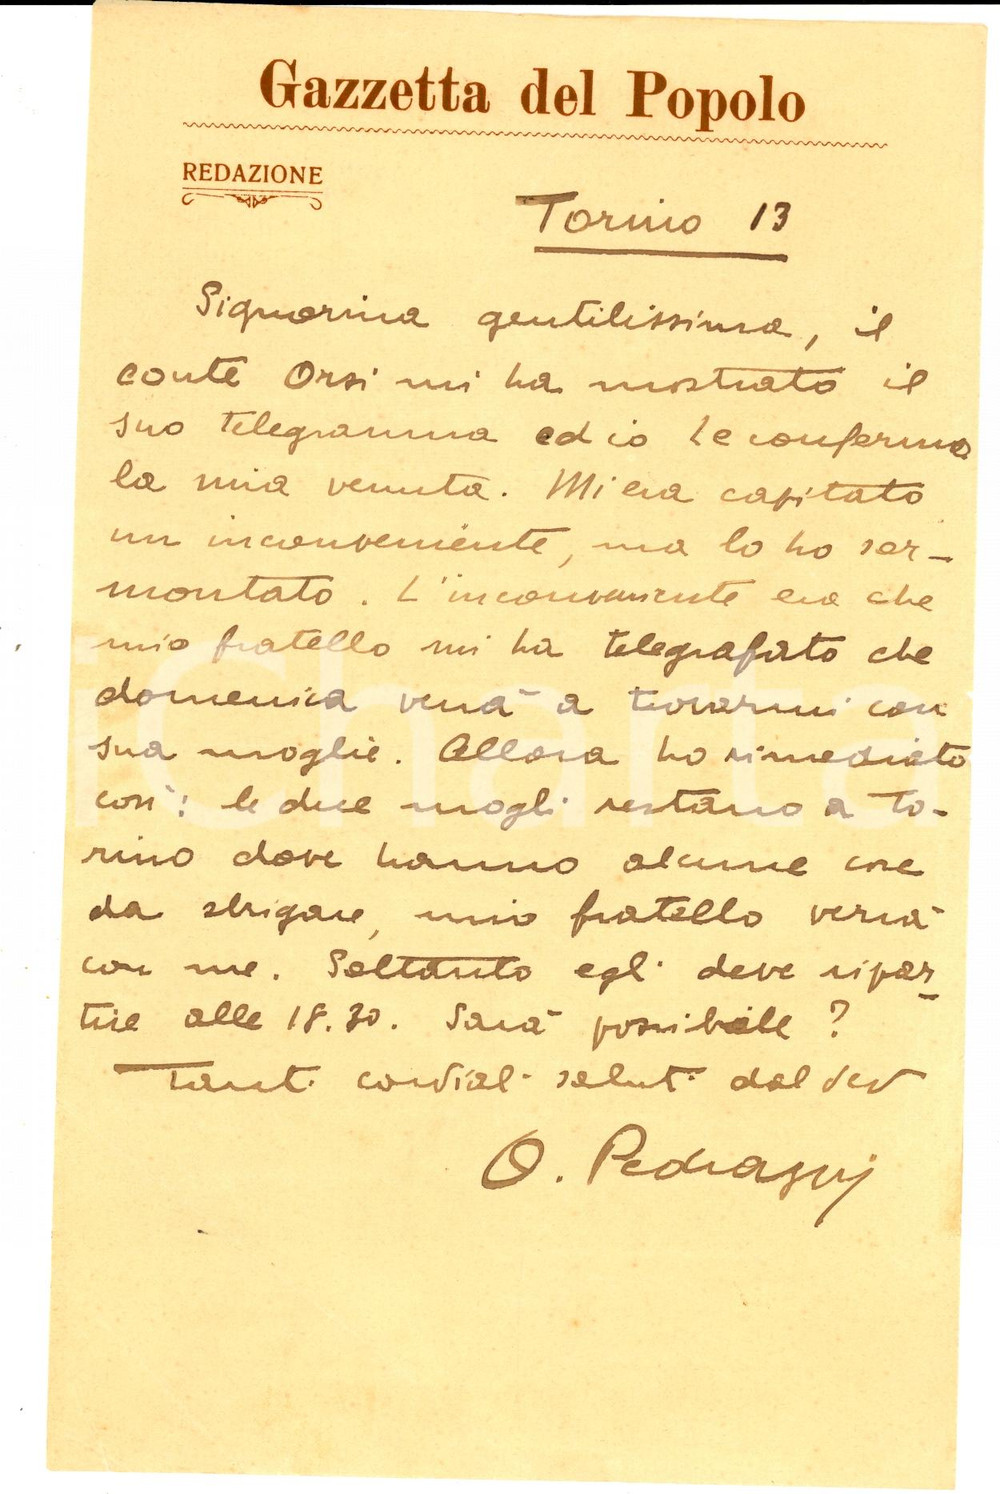 Gazzetta del Popolo
REDAZIONE
Torino 13
Signorina gentilissima, il
conte Orsi mi ha mostrato il
suo telegramma ed io Le confermo
la mia venuta. Mi era capitato
un inconveniente, ma lo ho sor-
montato. L'inconveniente era che
mio fratello mi ha telegrafato che
domenica verrà a trovarmi con
sua moglie. Allora ho rimediato
così: le due mogli restano a To-
rino dove hanno alcune cose
da sbrigare, mio fratello verrà
con me. Soltanto egli deve ripar-
tire alle 18.30. Sarà possibile?
Tanti cordiali saluti dal dev
O. Pedrazzi
iCharta